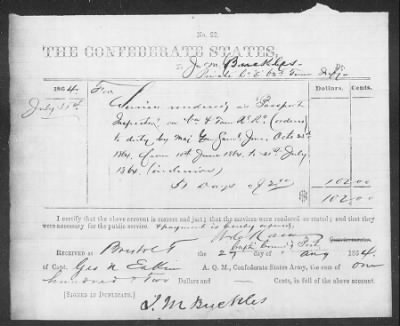 No. 22.
THE CONFEDERATE STATES,
To J. M. Buckles
Private Co. 63d Tenn
1864. For Dollars. Cents.
July 31st Services rendered as Passport
Inspector on Va & Tenn R. Rd (ordered
to duty by Maj Genl
1864. from 10th June 1864 to 31st July
1864 (inclusive)
51 Days @ 2.00 102.00
102.00
I certify that the above account is correct and just; that the services were rendered as stated; and that they
were necessary for the public service. Payment is hereby
Capt Post
Received at Bristol T the 29 of Aug 1864
of Capt. Geo. W. Eakin A. Q. M., Confederate States Army, the sum of one
hundred & Two Dollars and Cents, in full of the above account.
[Signed in Duplicate.]
J. M Buckles